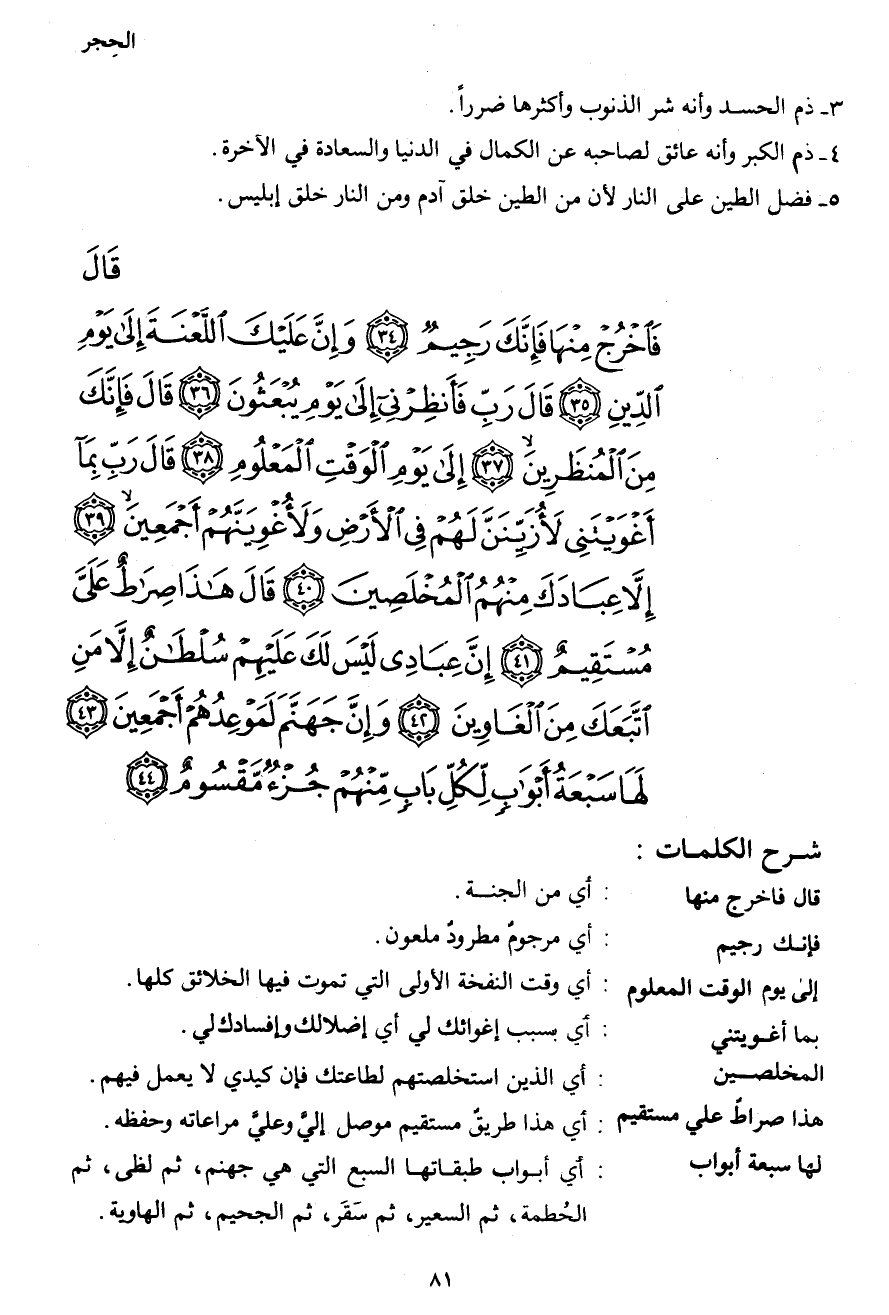 الحِجر
٣ـ ذم الحسد وأنه شر الذنوب وأكثرها ضرراً.
٤ـ ذم الكبر وأنه عائق لصاحبه عن الكمال في الدنيا والسعادة في الآخرة.
٥ـ فضل الطين على النار لأن من الطين خلق آدم ومن النار خلق إبليس.
قَالَ
فَٱخْرُجْ مِنْهَا فَإِنَّكَ رَجِيمٌ ﴿٣٤﴾ وَإِنَّ عَلَيْكَ ٱللَّعْنَةَ إِلَىٰ يَوْمِ
ٱلدِّينِ ﴿٣٥﴾ قَالَ رَبِّ فَأَنظِرْنِىٓ إِلَىٰ يَوْمِ يُبْعَثُونَ ﴿٣٦﴾ قَالَ فَإِنَّكَ
مِنَ ٱلْمُنظَرِينَ ۙ ﴿٣٧﴾ إِلَىٰ يَوْمِ ٱلْوَقْتِ ٱلْمَعْلُومِ ﴿٣٨﴾ قَالَ رَبِّ بِمَآ
أَغْوَيْتَنِى لَأُزَيِّنَنَّ لَهُمْ فِى ٱلْأَرْضِ وَلَأُغْوِيَنَّهُمْ أَجْمَعِينَ ۙ ﴿٣٩﴾
إِلَّا عِبَادَكَ مِنْهُمُ ٱلْمُخْلَصِينَ ﴿٤٠﴾ قَالَ هَٰذَا صِرَٰطٌ عَلَىَّ
مُسْتَقِيمٌ ﴿٤١﴾ إِنَّ عِبَادِى لَيْسَ لَكَ عَلَيْهِمْ سُلْطَٰنٌ إِلَّا مَنِ
ٱتَّبَعَكَ مِنَ ٱلْغَاوِينَ ﴿٤٢﴾ وَإِنَّ جَهَنَّمَ لَمَوْعِدُهُمْ أَجْمَعِينَ ﴿٤٣﴾
لَهَا سَبْعَةُ أَبْوَٰبٍ لِّكُلِّ بَابٍ مِّنْهُمْ جُزْءٌ مَّقْسُومٌ ﴿٤٤﴾
شرح الكلمات :
قال فاخرج منها : أي من الجنة.
فإنك رجيم : أي مرجومٌ مطرودٌ ملعون.
إلى يوم الوقت المعلوم : أي وقت النفخة الأولى التي تموت فيها الخلائق كلها.
بما أغويتني : أي بسبب إغوائك لي أي إضلالك وإفسادك لي.
المخلصين : أي الذين استخلصتهم لطاعتك فإن كيدي لا يعمل فيهم.
هذا صراطٌ علي مستقيم : أي هذا طريقٌ مستقيم موصل إليَّ وعليَّ مراعاته وحفظه.
لها سبعة أبواب : أي أبواب طبقاتها السبع التي هي جهنم، ثم لظى، ثم
الحُطمة، ثم السعير، ثم سَقَر، ثم الجحيم، ثم الهاوية.
٨١